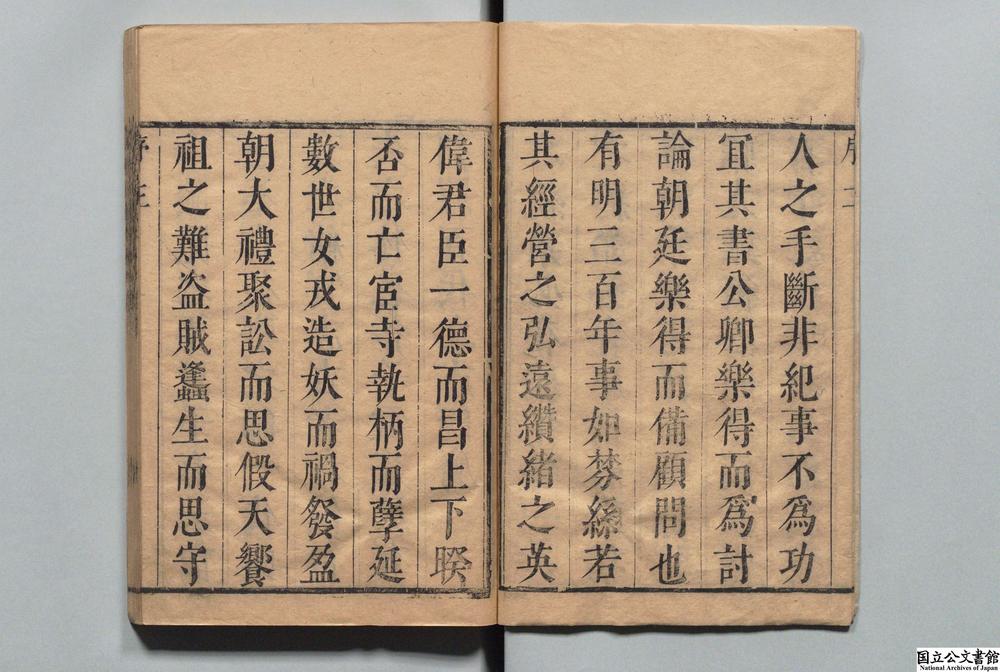 序 二
人之手斷非紀事不爲功
宜其書公卿樂得而爲討
論朝廷樂得而備顧問也
有明三百年事如棼絲若
其經營之弘遠纘緒之英
偉君臣一德而昌上下睽
否而亡宦寺執柄而孽延
數世女戎造妖而禍發盈
朝大禮聚訟而思假天饗
祖之難盜賊蠭生而思守
序 三
国立公文書館
National Archives of Japan